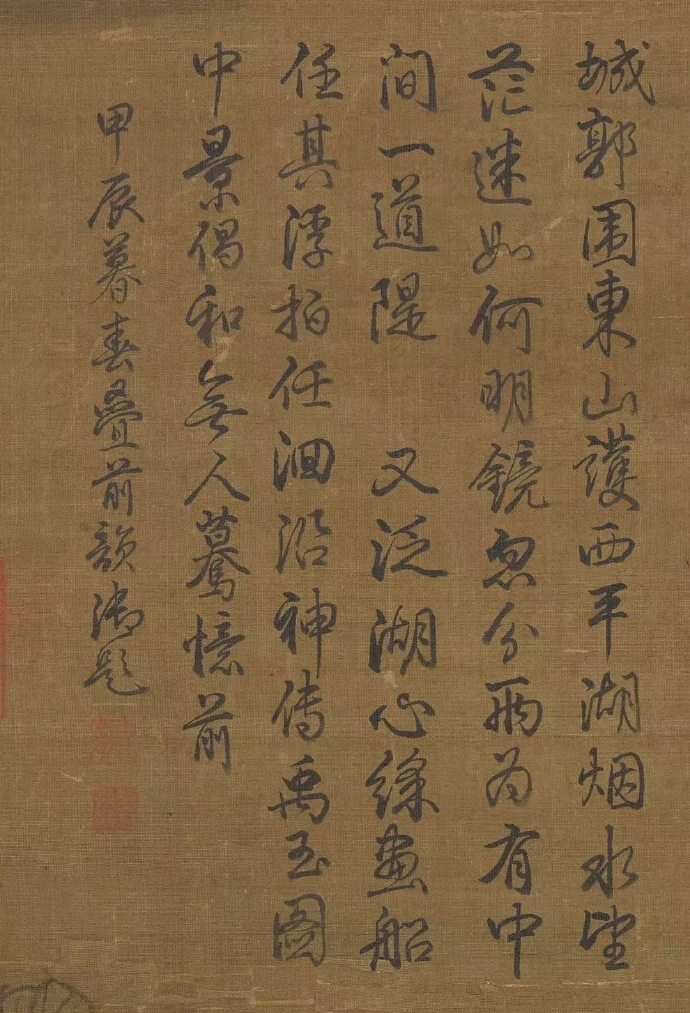 城郭围東山護西平湖烟水望
茫迷如何明鏡忽分兩为有中
间一道隄 又泛湖心綵画船
任其浮拍任洄沿神傳禹玉圖
中景偶和無人驀憶前
甲辰暮春疊前韻御題